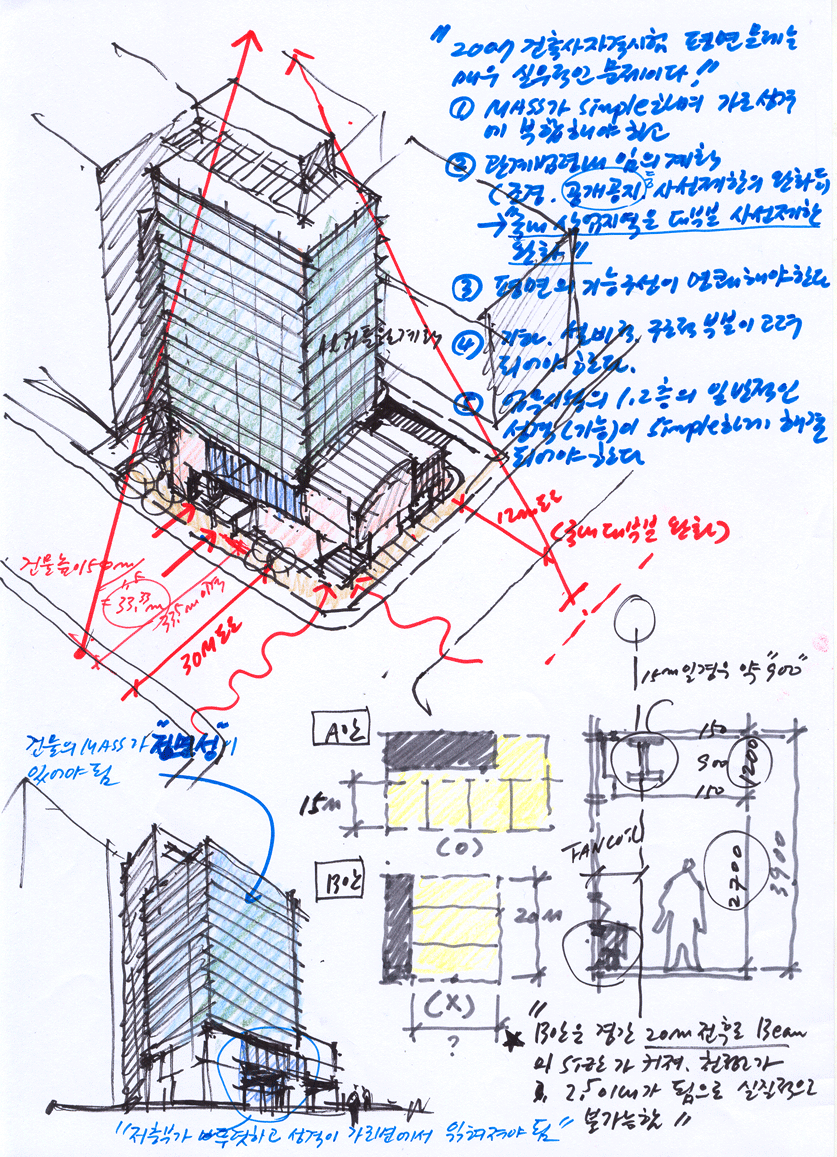 "2009 건축사자격시험 평면문제는
매우 실무적인 문제이다."
① MASS가 simple하며 가로성격
에 부합해야 하고
② 관계법령내 임의계획
(조경, 공개공지, 사선제한의 완화등)
→ "국내 상업지역은 대부분 사선제한
완화"
③ 평면의 기능구성이 명쾌해야한다
④ 지하, 설비적, 구조적 부분이 고려
되어야 한다.
⑤ 1.2층의 일반적인
성격(기능)이 simple하게 해결
되어야 한다
12M도로
(국내 대부분 완화)
건물높이 50m
1.5
= 33.33m
33.5m 이격
30M도로
건물의 MASS가 "정면성"이
있어야 됨
A안
15M
(O)
B안
20M
(X)
?
15m일경우 약 "900"
150
900
150
1200
FANCOIL
2700
3900
"
★ B안은 경간 20M 전후로 Beam
의 가 커져, 천정고가
2.5이내가 됨으로 실질적으로
불가능함"
"저층부가 하고 성격이 가로변에서 읽혀져야 됨"